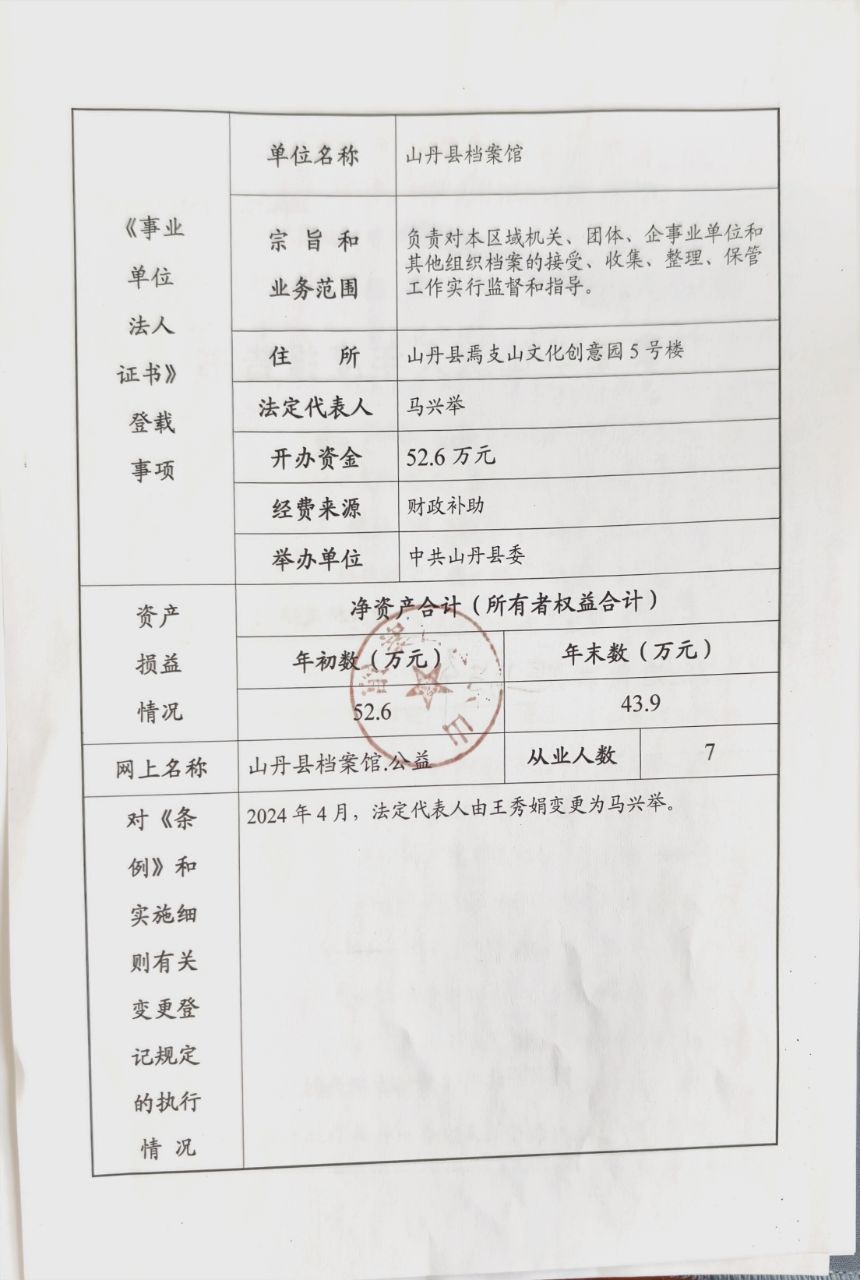 《事业
单位
法人
证书》
登载
事项
单位名称
山丹县档案馆
宗旨和
业务范围
负责对本区域机关、团体、企事业单位和
其他组织档案的接受、收集、整理、保管
工作实行监督和指导。
住 所
山丹县焉支山文化创意园5号楼
法定代表人
马兴举
开办资金
52.6 万元
经费来源
财政补助
举办单位
中共山丹县委
资产
损益
情况
净资产合计（所有者权益合计）
年初数（万元）
年末数（万元）
52.6
43.9
网上名称
山丹县档案馆.公益
从业人数
7
对《条
例》和
实施细
则有关
变更登
记规定
的执行
情 况
2024年4月，法定代表人由王秀娟变更为马兴举。